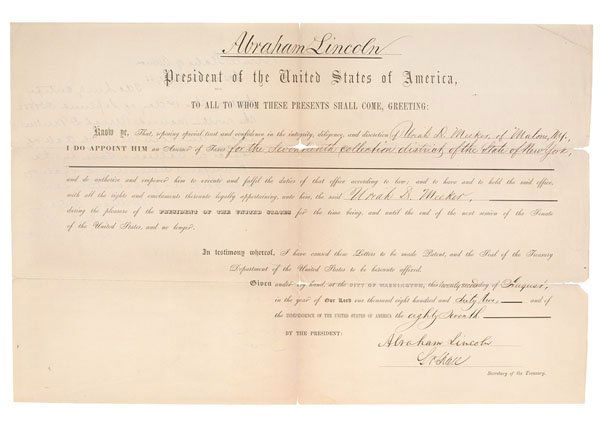 Abraham Lincoln
President of the United States of America,
TO ALL TO WHOM THESE PRESENTS SHALL COME, GREETING:
Know ye, That, reposing special trust and confidence in the integrity, diligency, and discretion of Norah D. Meeker, of Malone, N.Y.,
I DO APPOINT HIM an Assessor of Taxes for the Seventeenth collection district of the State of New York,
and do authorize and empower him to execute and fulfil the duties of that office according to law; and to have and to hold the said office,
with all the rights and emoluments thereunto legally appertaining, unto him, the said Norah D. Meeker,
during the pleasure of the PRESIDENT OF THE UNITED STATES for the time being, and until the end of the next session of the Senate
of the United States, and no longer.
In testimony whereof, I have caused these Letters to be made Patent, and the Seal of the Treasury
Department of the United States to be hereunto affixed.
Given under my hand, at the CITY OF WASHINGTON, this twenty second day of August,
in the year of Our Lord one thousand eight hundred and Sixty two and of
the INDEPENDENCE OF THE UNITED STATES OF AMERICA the eighty Seventh
BY THE PRESIDENT:
Abraham Lincoln
Secretary of the Treasury.